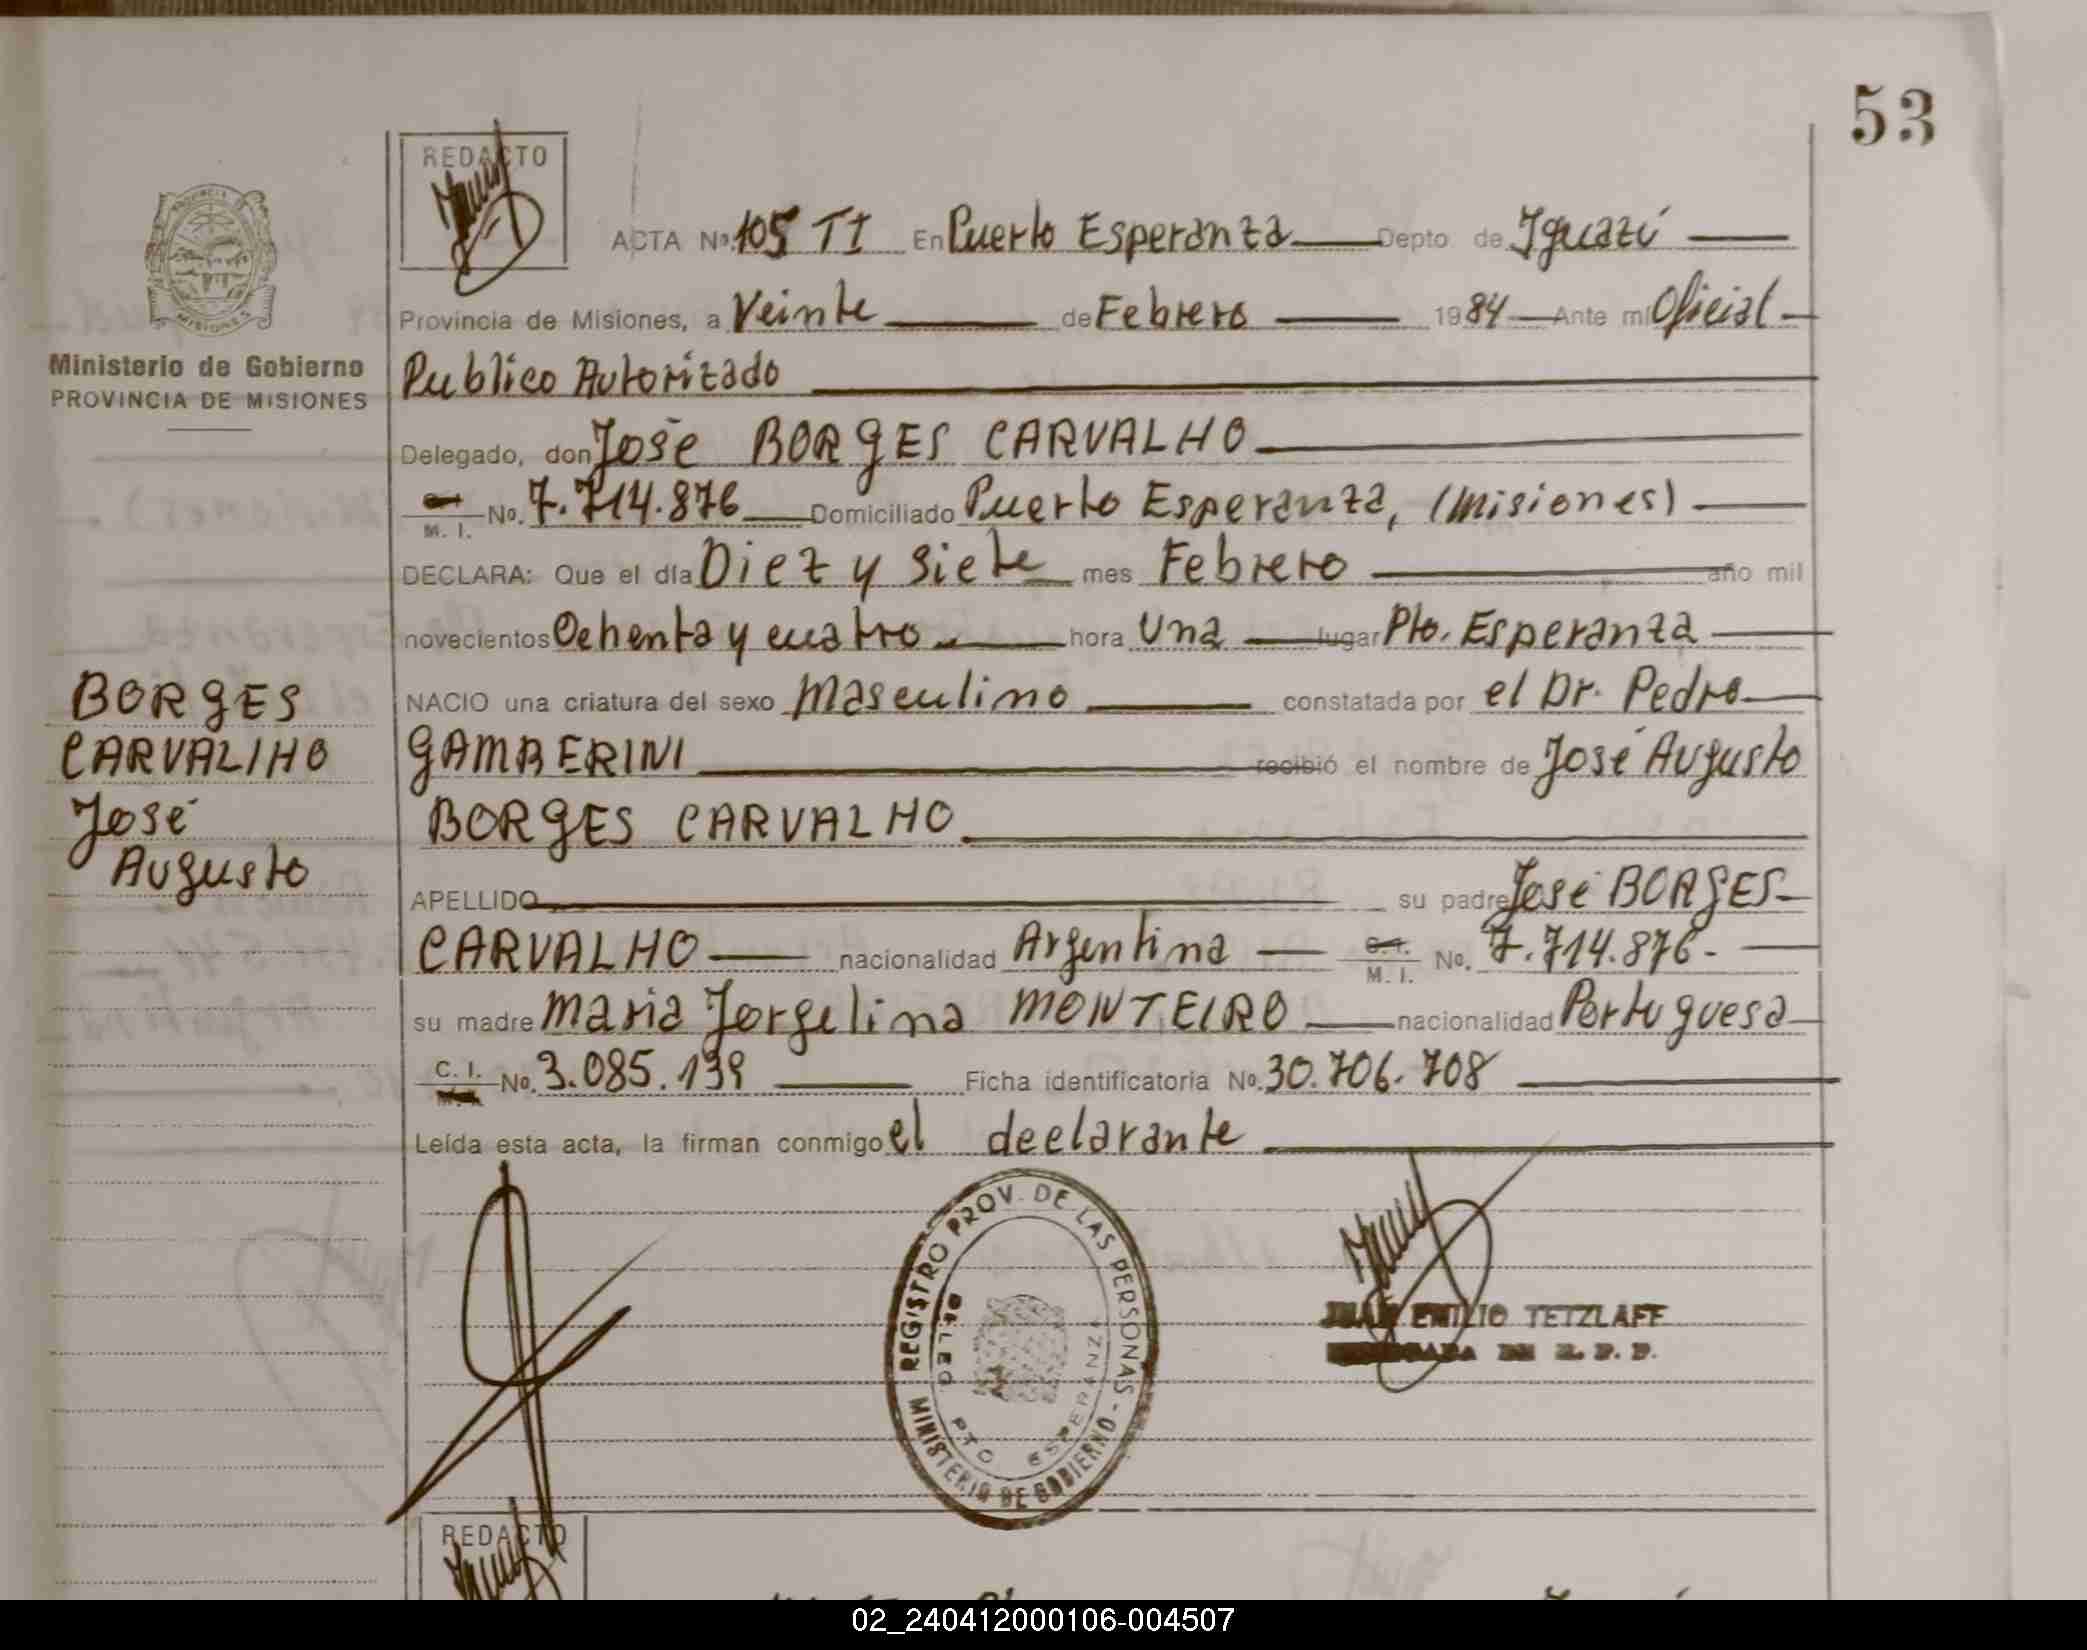 53
REDACTO
ACTA Nº 105 TI En Puerto Esperanza Depto de Iguazú
Provincia de Misiones, a Veinte de Febrero 1984 Ante mí Oficial
Ministerio de Gobierno
PROVINCIA DE MISIONES
Publico Autorizado
Delegado, don José BORGES CARVALHO
M. I. No. 7.714.876 Domiciliado Puerto Esperanza, (Misiones)
DECLARA: Que el día Diez y Siete mes Febrero año mil
novecientos Ochenta y cuatro hora Una lugar Pto. Esperanza
NACIO una criatura del sexo Masculino constatada por el Dr. Pedro
GAMBERINI recibió el nombre de José Augusto
BORGES CARVALHO
BORGES
CARVALIHO
José
Augusto
APELLIDO su padre José BORGES
CARVALHO nacionalidad Argentina C.I. M. I. No. 7.714.876.
su madre Maria Jorgelina MONTEIRO nacionalidad Portuguesa
C. I. No. 3.085.139 Ficha identificatoria No. 30.706.708
Leída esta acta, la firman conmigo el declarante
REGISTRO PROV. DE LAS PERSONAS - MINISTERIO DE GOBIERNO
DELEG. PTO ESPERANZA
JUAN EMILIO TETZLAFF
DE R. P. P.
REDACTO
02_240412000106-004507